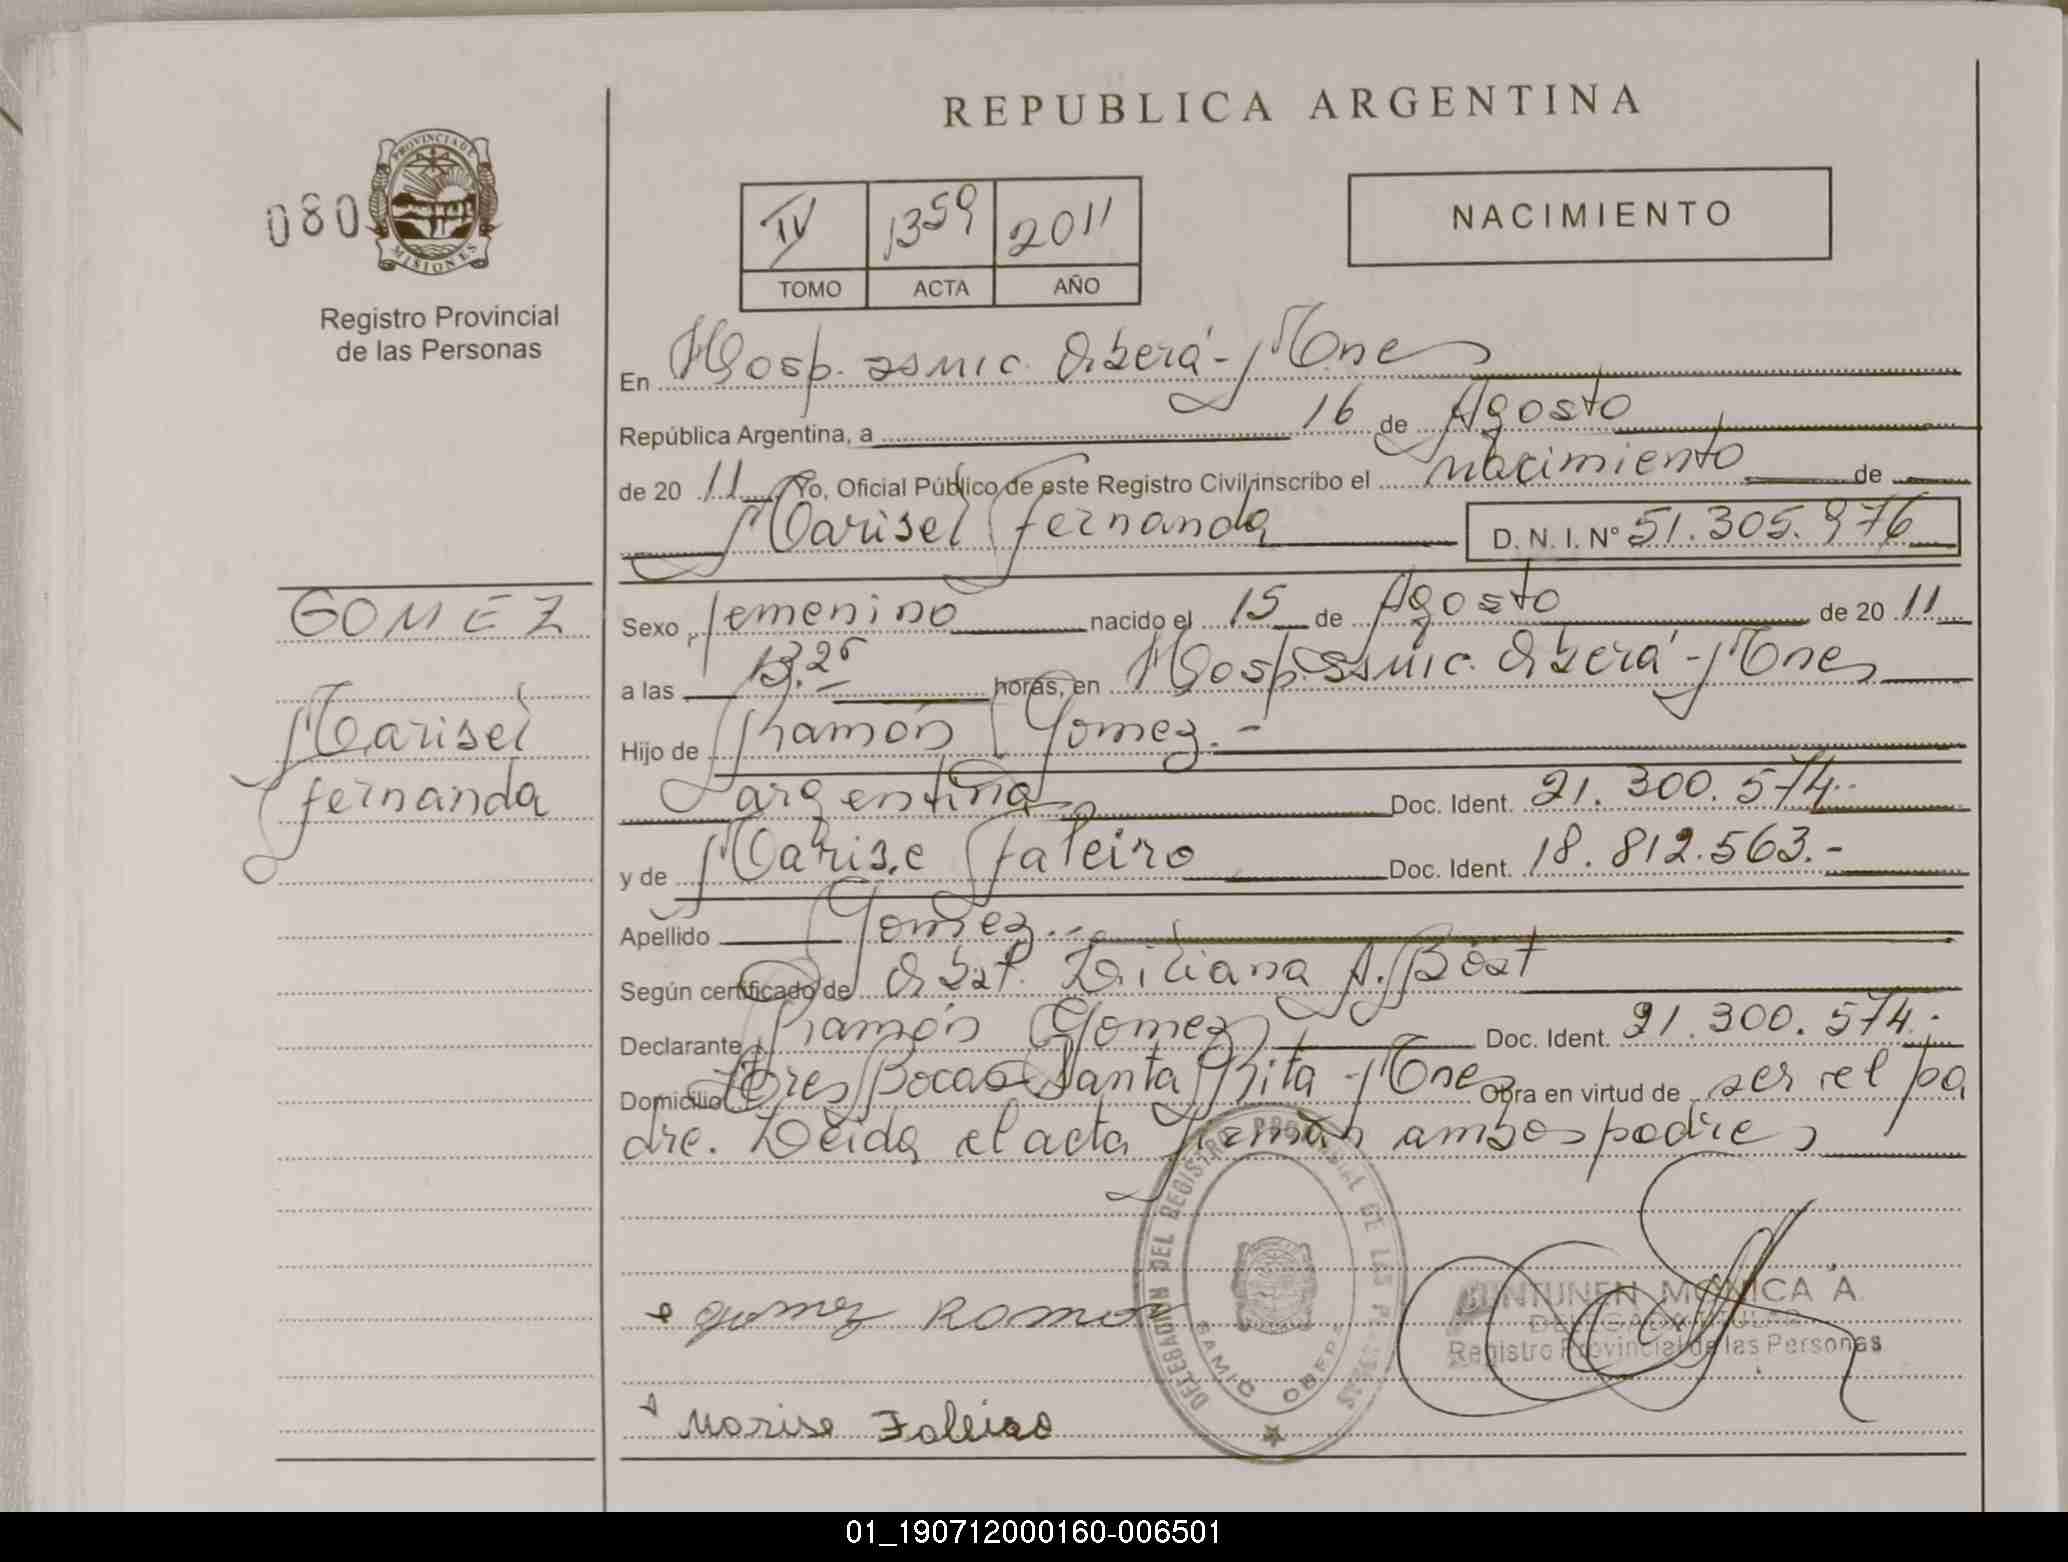 REPUBLICA ARGENTINA
PROVINCIA DE
MISIONES
080
Registro Provincial
de las Personas
IV 1359 2011
TOMO ACTA AÑO
NACIMIENTO
En Hosp. SAMIC. Oberá - Mnes
República Argentina, a 16 de Agosto
de 20 11 Yo, Oficial Público de este Registro Civil inscribo el nacimiento de
Marisel Fernanda D. N. I. Nº 51.305.976
GOMEZ
Marisel
Fernanda
Sexo femenino nacido el 15 de Agosto de 20 11
a las 13.25 horas, en Hosp. SAMIC. Oberá - Mnes
Hijo de Ramón Gomez.-
argentina Doc. Ident. 21.300.574.-
y de Marise Faleiro Doc. Ident. 18.812.563.-
Apellido Gomez.-
Según certificado de Obst. Liliana A. Bost
Declarante Ramón Gomez Doc. Ident. 21.300.574.-
Domicilio Tres Bocas Santa Rita - Mnes Obra en virtud de ser el pa
dre. Leida el acta firman ambos padres
DELEGACION DEL REGISTRO PROVINCIAL DE LAS PERSONAS
SAMIC OBERA
gomez Ramon
MONICA A.
DELEGADA TITULAR
Registro Provincial de las Personas
Marise Faleiro
01_190712000160-006501